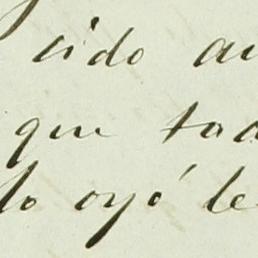 cido au
que tod
lo oyó le